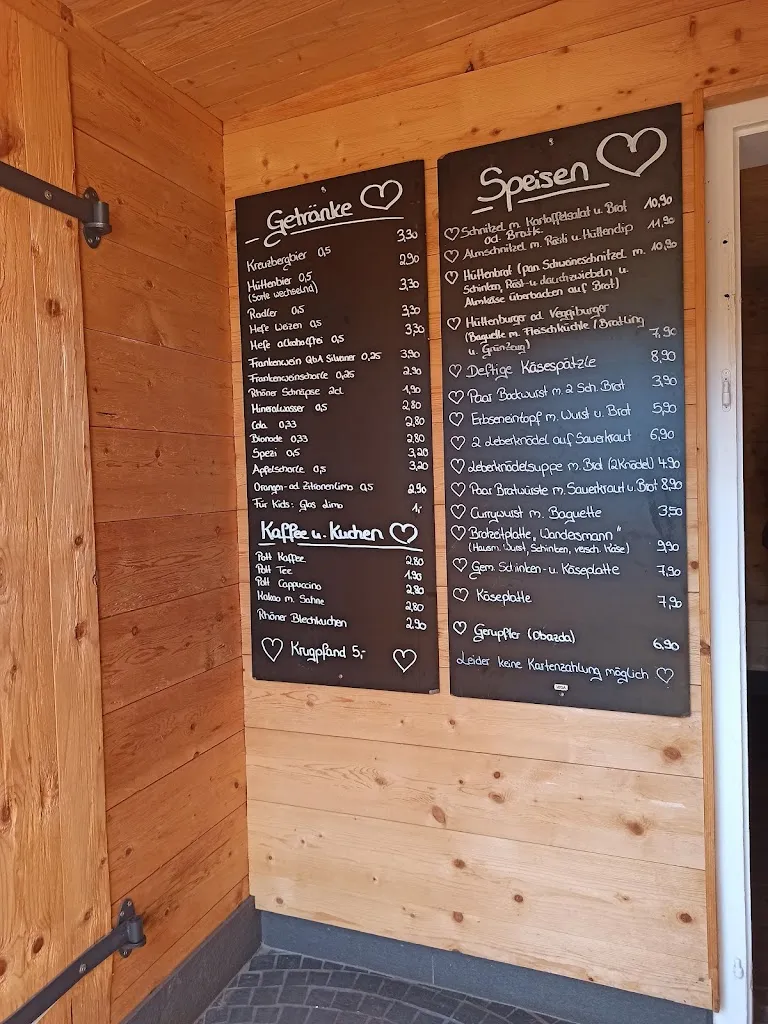 Getränke
Kreuzbergbier 0,5 3,30
Hüttenbier 0,5 2,90
(Sorte wechselnd)
Radler 0,5 3,30
Hefe Weizen 0,5 3,30
Hefe alkoholfrei 0,5 3,30
Frankenwein QbA Silvaner 0,25 3,90
Frankenweinschorle 0,25 2,90
Rhöner Schnäpse 2cl 1,90
Mineralwasser 0,5 2,80
Cola 0,33 2,80
Bionade 0,33 2,80
Spezi 0,5 3,20
Apfelschorle 0,5 3,20
Orangen- od. Zitronenlimo 0,5 2,90
Für Kids: Glas Limo 1,-
Kaffee u. Kuchen
Pott Kaffee 2,80
Pott Tee 1,90
Pott Cappuccino 2,80
Kakao m. Sahne 2,80
Rhöner Blechkuchen 2,90
Krugpfand 5,-
Speisen
Schnitzel m. Kartoffelsalat u. Brot 10,90
od. Bratk.
Almschnitzel m. Rösti u. Hüttendip 11,90
Hüttenbrot (pan. Schweineschnitzel m. 10,90
Schinken, Röst- u. Lauchzwiebeln u.
Almkäse überbacken auf Brot)
Hüttenburger od. Veggiburger
(Baguette m. Fleischküchle / Bratling
u. Grünzeug) 7,90
Deftige Käsespätzle 8,90
Paar Bockwurst m. 2 Sch. Brot 3,90
Erbseneintopf m. Wurst u. Brot 5,90
2 Leberknödel auf Sauerkraut 6,90
Leberknödelsuppe m. Brot (2 Knödel) 4,90
Paar Bratwürste m. Sauerkraut u. Brot 8,90
Currywurst m. Baguette 3,50
Brotzeitplatte "Wandersmann"
(Hausm. Wurst, Schinken, versch. Käse) 9,90
Gem. Schinken- u. Käseplatte 7,90
Käseplatte 7,90
Gerupfter (Obazda) 6,90
Leider keine Kartenzahlung möglich